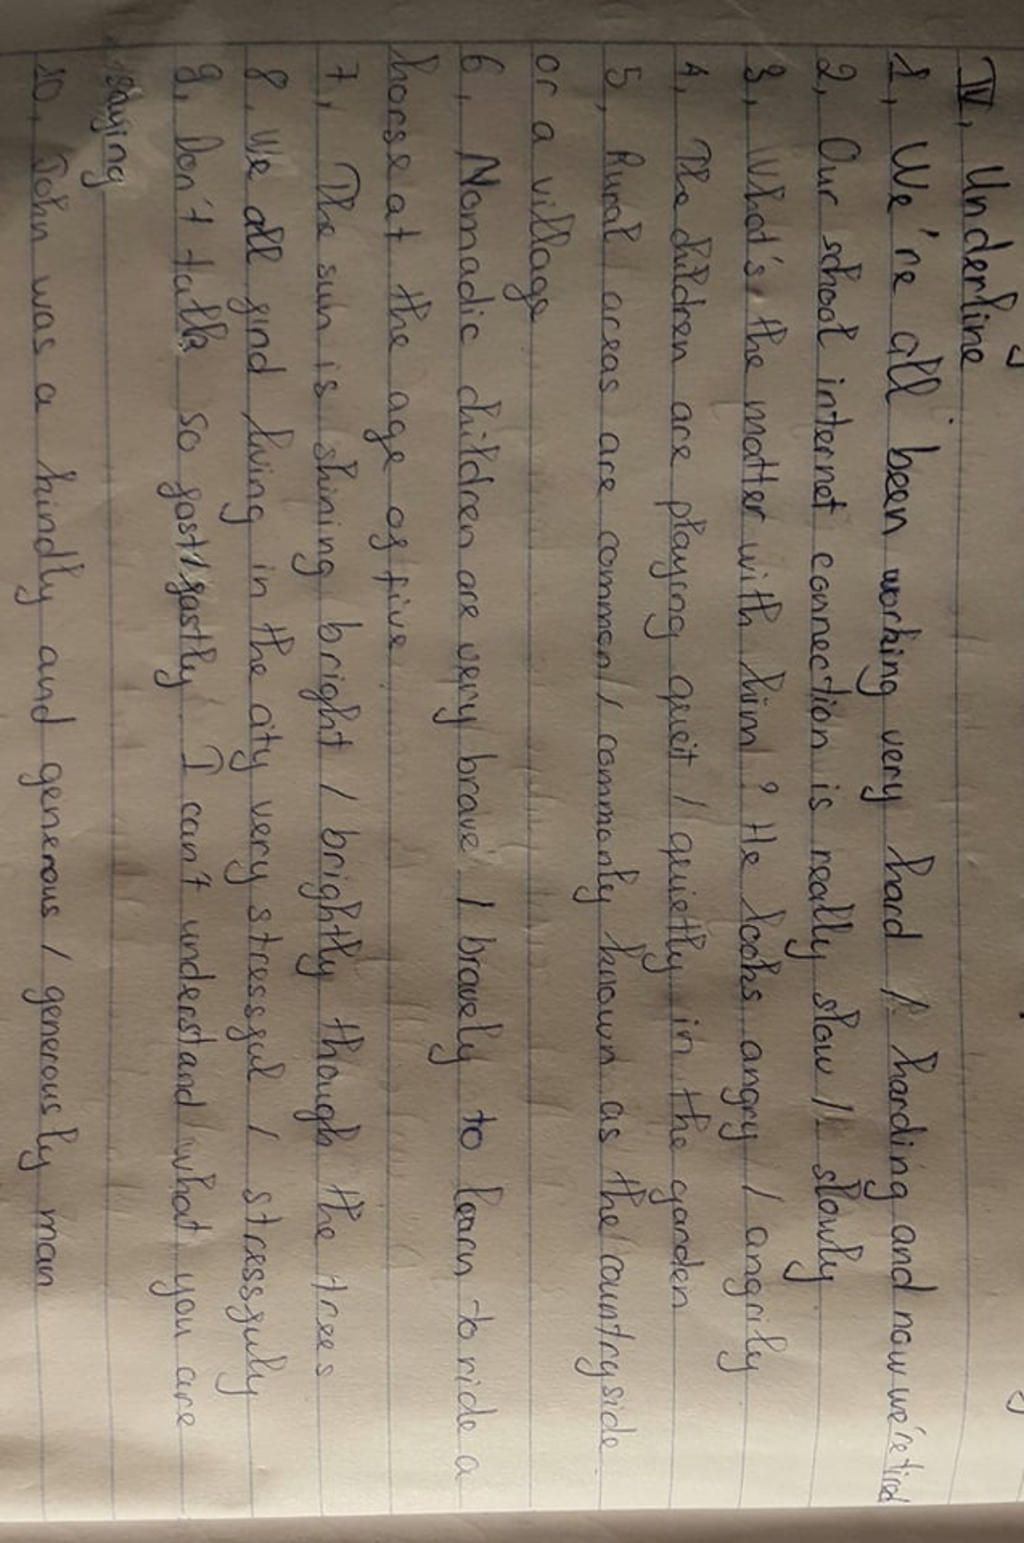 IV, Underline
1, We're all been working very hard / harding and now we're tired
2, Our school internet connection is really slow / slowly
3, What's the matter with him? He looks angry / angrily
4, The children are playing queit / quietly in the garden
5, Rural areas are common / commonly known as the countryside
or a village
6, Nomadic children are very brave / bravely to learn to ride a
horse at the age of five
7, The sun is shining bright / brightly though the trees
8, We all find living in the city very stressful / stressfuly
9, Don't talk so fast / fastly. I can't understand what you are
saying
10, John was a kindly and generous / generously man